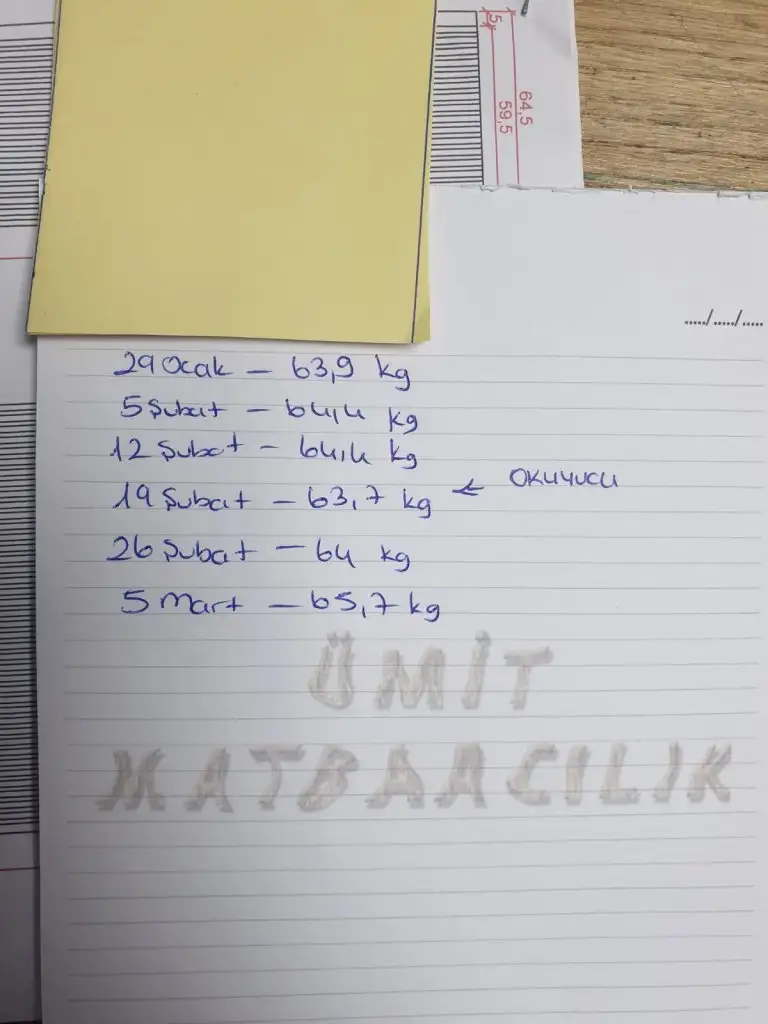 5
64,5
59,5
...../...../.....
29 Ocak – 63,9 kg
5 Şubat – 64,4 kg
12 Şubat – 64,4 kg
19 Şubat – 63,7 kg ← okuyucu
26 Şubat – 64 kg
5 Mart – 65,7 kg
ÜMİT
MATBAACILIK